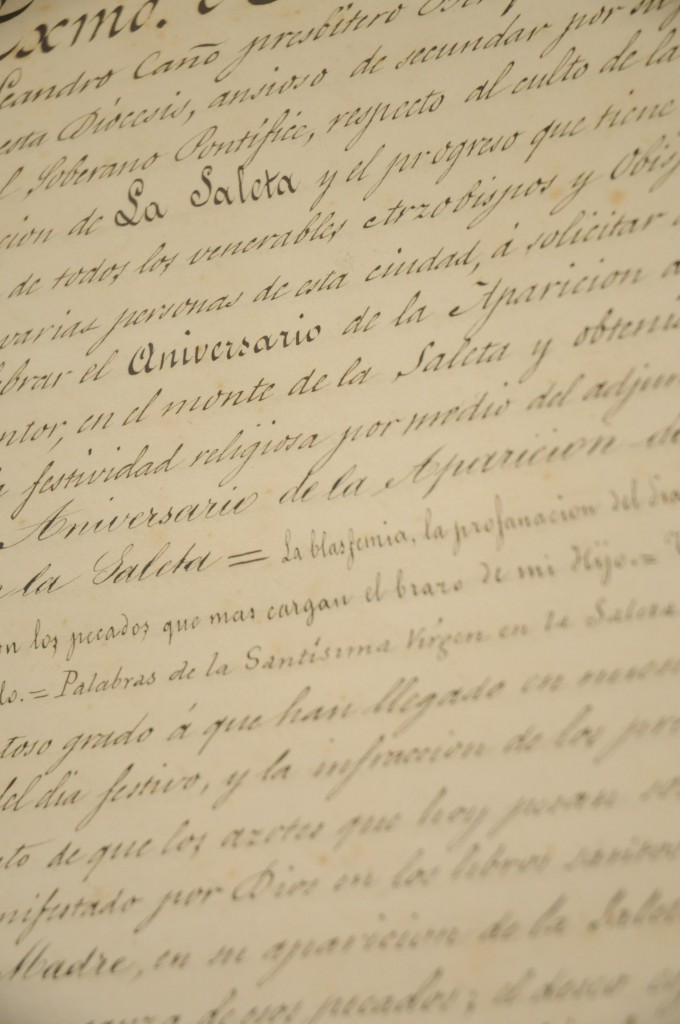 Exmo.
Leandro Caño presbítero
esta Diócesis, ansioso de secundar por su
Soberano Pontífice, respecto al culto de la
cion de La Saleta y el progreso que tiene
de todos los venerables Arzobispos y Obis
varias personas de esta ciudad, á solicitar
brar el Aniversario de la Aparicion
ntor, en el monte de la Saleta y obteni
festividad religiosa por medio del adjun
Aniversario de la Aparicion de
la Saleta = La blasfemia, la profanacion del
on los pecados que mas cargan el brazo de mi Hijo.=
lo.= Palabras de la Santísima Virgen en la Saleta
toso grado á que han llegado en nues
del dia festivo, y la infraccion de los pre
to de que los azotes que hoy pesan so
nifestado por Dios en los libros santos
Madre, en su aparicion de la Salet
de esos pecados; el deseo